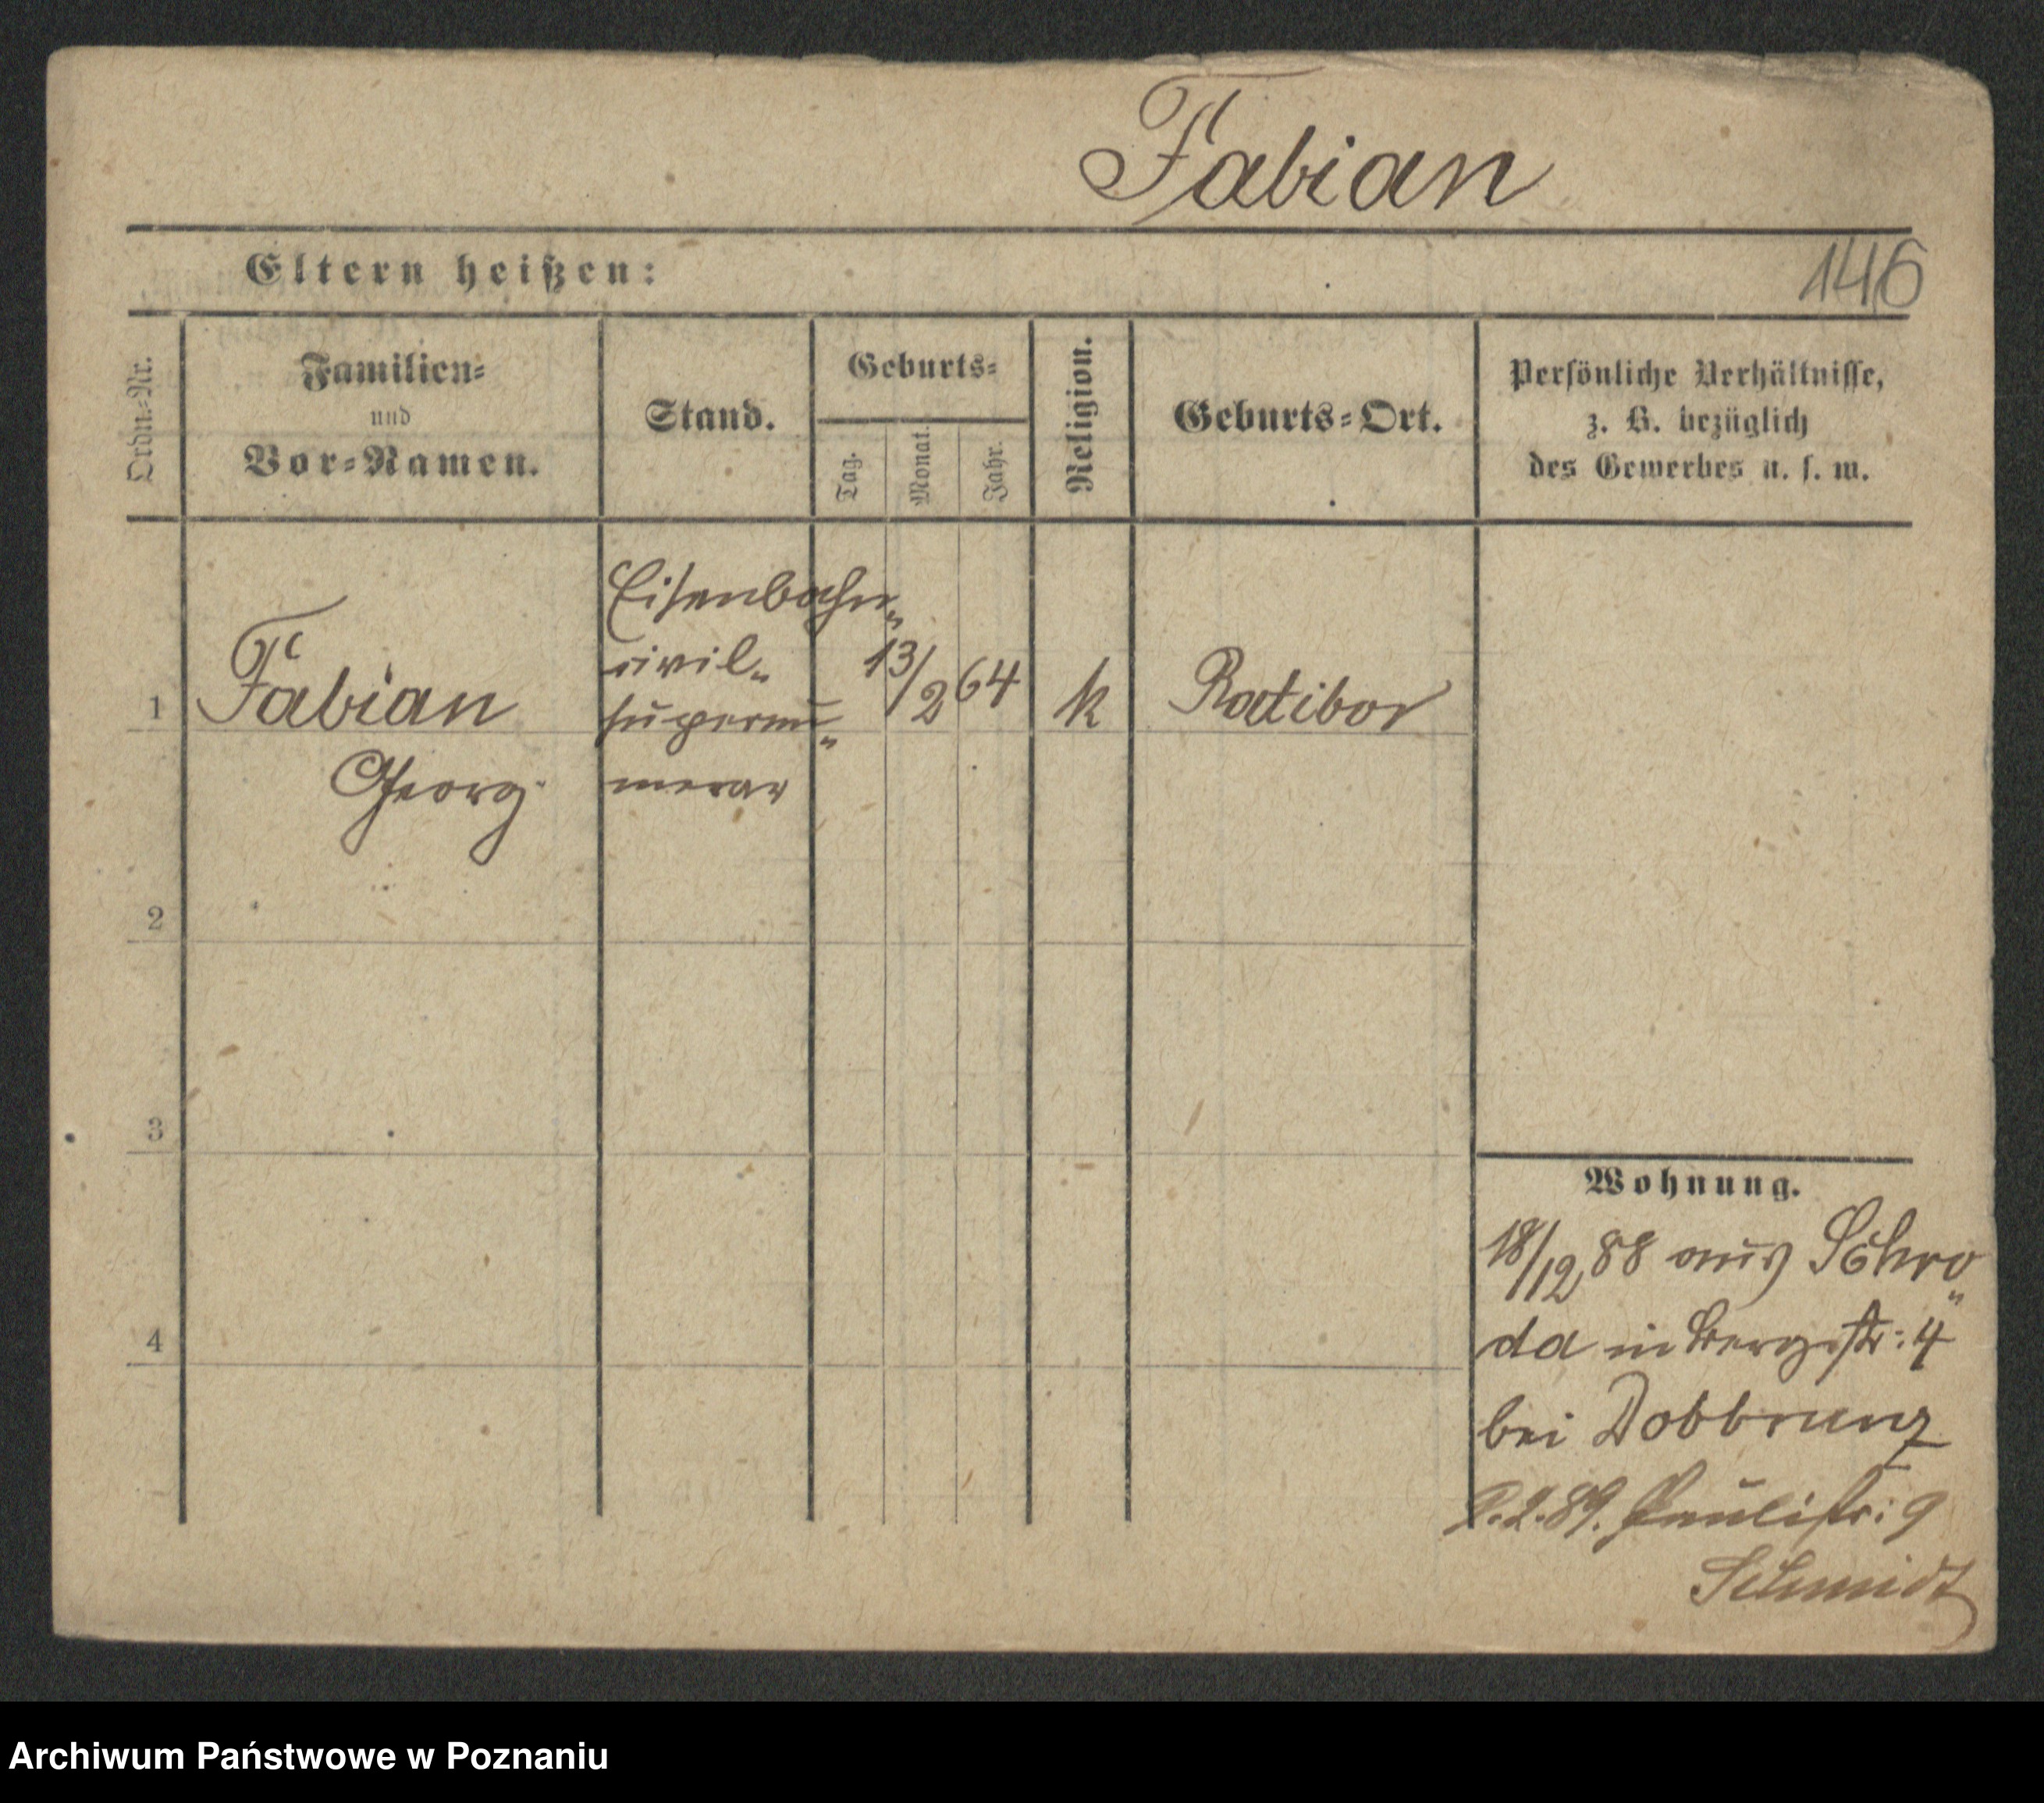 Fabian
Eltern heißen:
146
Ordn.-Nr.
Familien-
und
Vor-Namen.
Stand.
Geburts-
Tag.
Monat.
Jahr.
Religion.
Geburts-Ort.
Persönliche Verhältnisse,
z. B. bezüglich
des Gewerbes u. s. w.
1
Fabian
Georg
Eisenbahn„
civil„
supernu„
merar
13/2 64
k
Ratibor
2
3
4
Wohnung.
18/12 88 aus Schro„
da in Bergstr: 4
bei Dobbrunz
2.89. Paulistr: 9
Schmidt
Archiwum Państwowe w Poznaniu